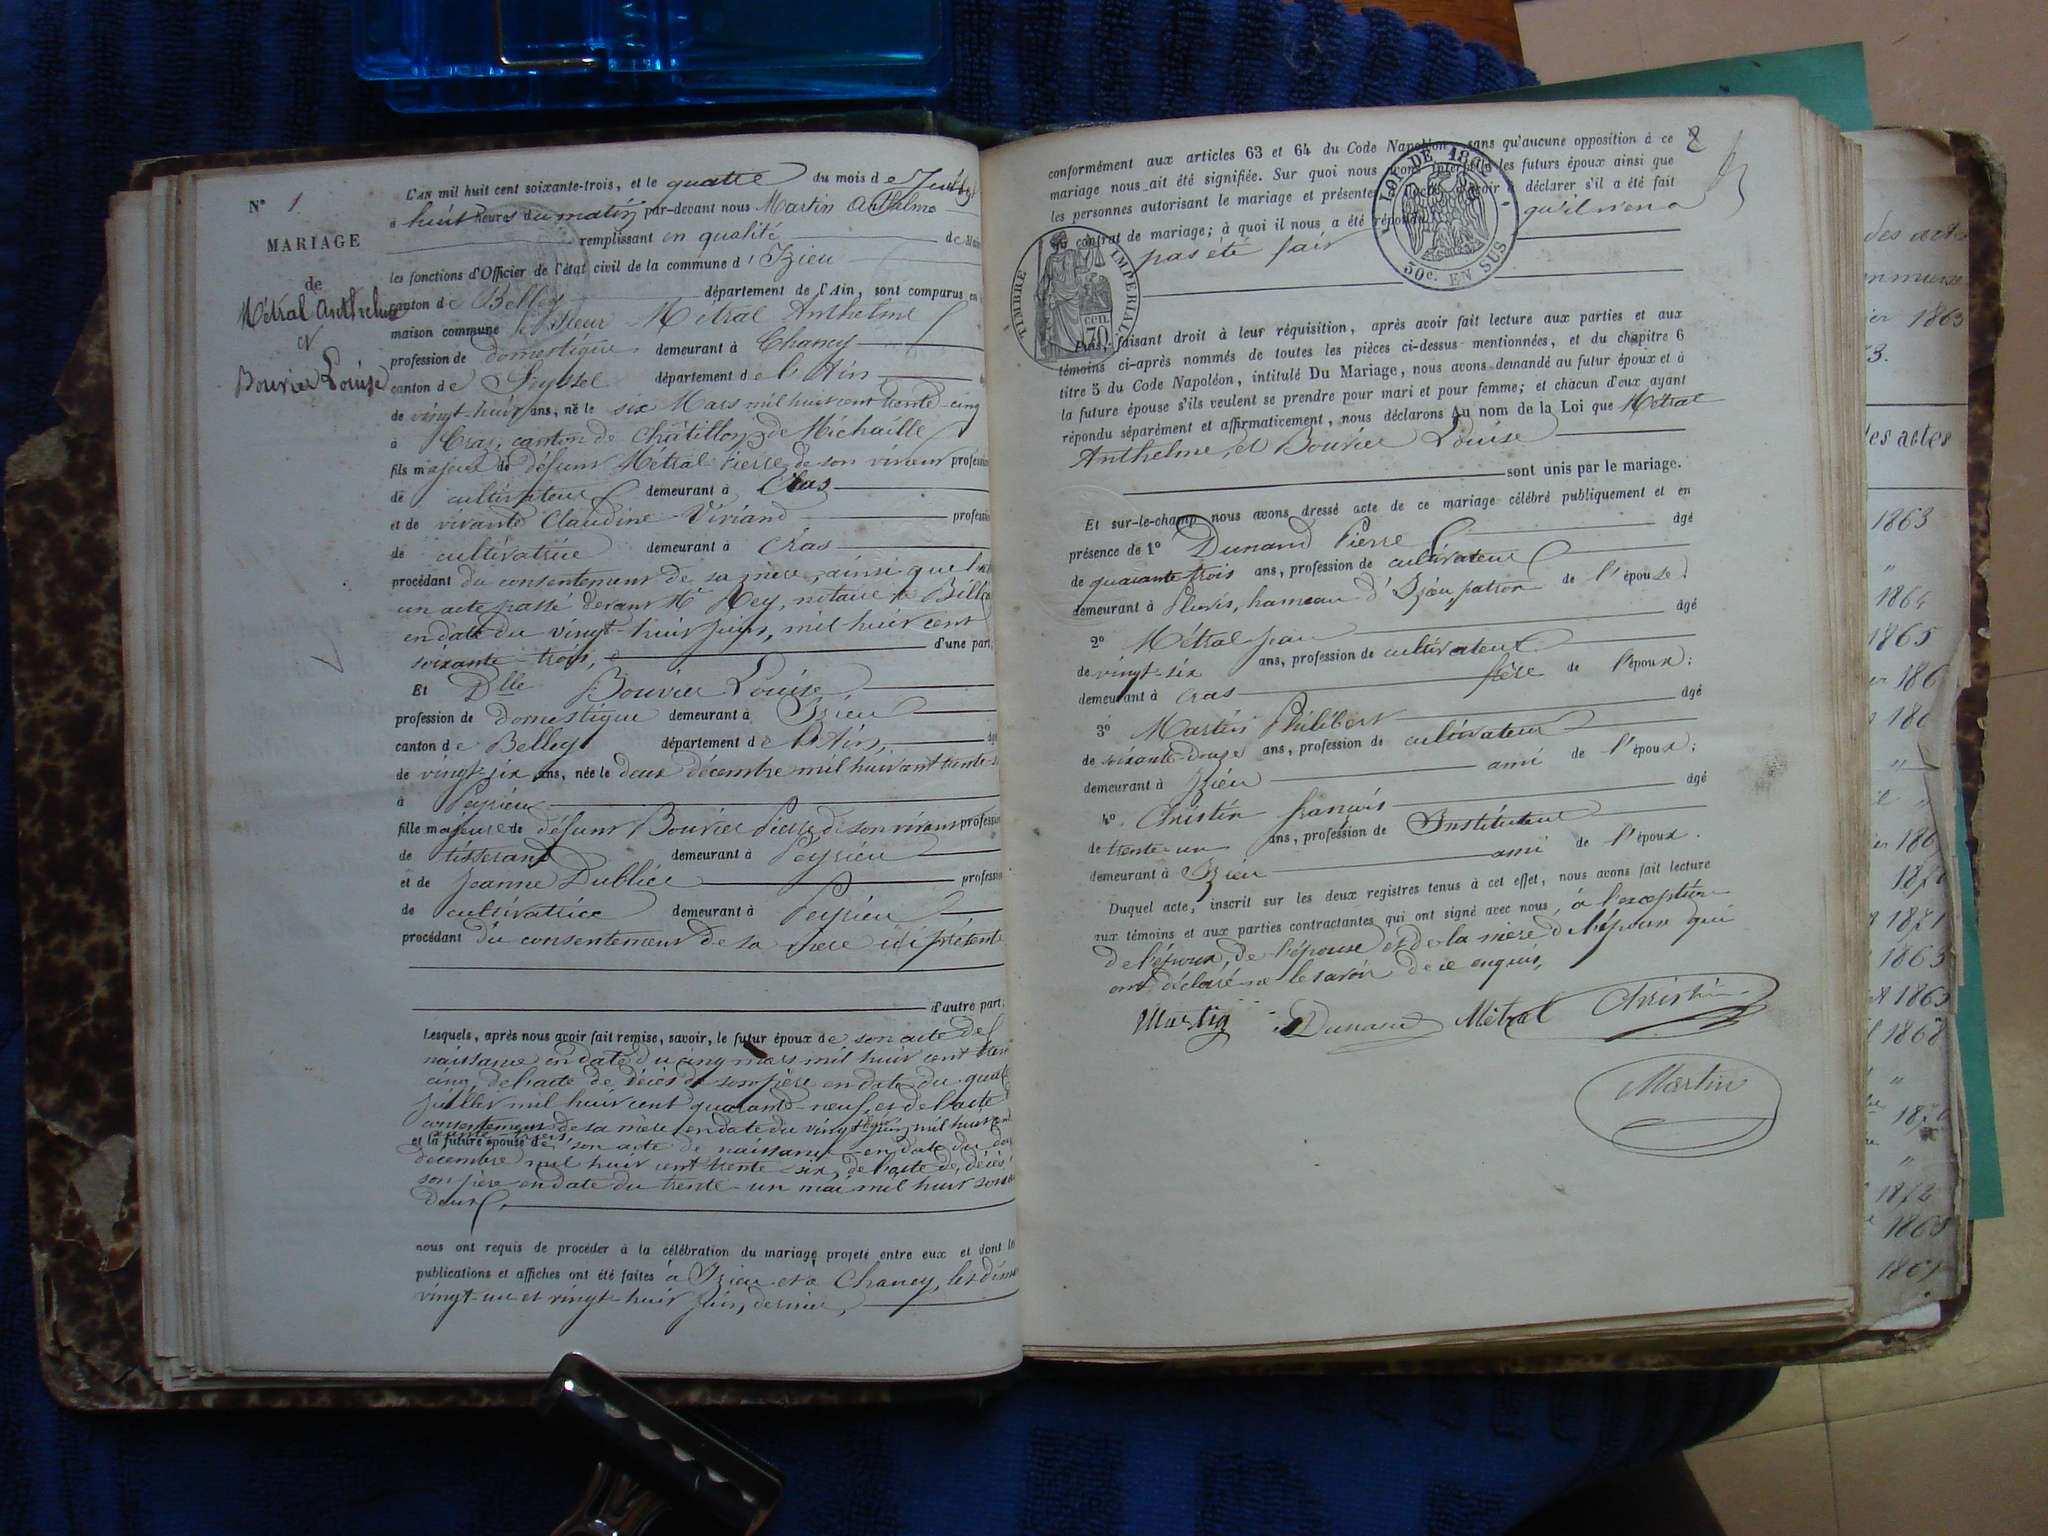 N° 1
MARIAGE
de
Métral Anthelme
et
Bouvier Louise
L'AN mil huit cent soixante-trois, et le quatre du mois de Juillet
à huit heures du matin par-devant nous Martin Anthelme
remplissant en qualité de Maire
les fonctions d'Officier de l'état civil de la commune d'Izieu
canton de Belley département de l'Ain, sont comparus en
maison commune le Sieur Métral Anthelme
profession de domestique demeurant à Chancy
canton de Seyssel département de l'Ain
de vingt-huit ans, né le six Mars mil huit cent trente-cinq
à Cras, canton de Châtillon de Michaille
fils majeur de défunt Métral Pierre de son vivant profession
de cultivateur demeurant à Cras
et de vivante Claudine Viviand profession
de cultivatrice demeurant à Cras
procédant du consentement de sa mère, ainsi que
un acte passé devant Me Rey, notaire à Belley
en date du vingt-huit juin, mil huit cent
soixante-trois, d'une part;
Et Dlle Bouvier Louise
profession de domestique demeurant à Izieu
canton de Belley département de l'Ain, âgé
de vingt-six ans, née le deux décembre mil huit cent trente-s
à Peyrieu
fille majeure de défunt Bouvier Pierre de son vivant profession
de tisserand demeurant à Peyrieu
et de Jeanne Dublice profession
de cultivatrice demeurant à Peyrieu
procédant du consentement de sa mère ici présente
d'autre part;
Lesquels, après nous avoir fait remise, savoir, le futur époux de son acte de
naissance en date du cinq mars mil huit cent trente
cinq, de l'acte de décès de son père en date du quatre
juillet mil huit cent quarante-neuf, et de l'acte
consentement de sa mère, en date du vingt juin mil huit cent
et la future épouse de son acte de naissance en date du deux
décembre mil huit cent trente-six, de l'acte de décès
son père en date du trente-un mai mil huit
deux,
nous ont requis de procéder à la célébration du mariage projeté entre eux et dont les
publications et affiches ont été faites à Izieu et à Chancy, les dim
vingt-un et vingt-huit juin, dernier,
2
conformément aux articles 63 et 64 du Code Napoléon, sans qu'aucune opposition à ce
mariage nous ait été signifiée. Sur quoi nous avons interpellé les futurs époux ainsi que
les personnes autorisant le mariage et présentes à l'acte, d'avoir à déclarer s'il a été fait
un contrat de mariage; à quoi il nous a été répondu qu'il n'en a
pas été fait
LOI DE 1862
50c. EN SUS
TIMBRE IMPÉRIAL
70 cen.
Puis, faisant droit à leur réquisition, après avoir fait lecture aux parties et aux
témoins ci-après nommés de toutes les pièces ci-dessus mentionnées, et du chapitre 6
titre 5 du Code Napoléon, intitulé Du Mariage, nous avons demandé au futur époux et à
la future épouse s'ils veulent se prendre pour mari et pour femme; et chacun d'eux ayant
répondu séparément et affirmativement, nous déclarons Au nom de la Loi que Métral
Anthelme, et Bouvier Louise
sont unis par le mariage.
Et sur-le-champ nous avons dressé acte de ce mariage célébré publiquement et en
présence de 1° Dunand Pierre âgé
de quarante-trois ans, profession de cultivateur
demeurant à hameau d'Izieu patron de l'épouse;
2° Métral Jean âgé
de vingt-six ans, profession de cultivateur
demeurant à Cras frère de l'époux;
3° Martin Philibert âgé
de soixante-douze ans, profession de cultivateur
demeurant à Izieu ami de l'époux;
4° Christin françois âgé
de trente-un ans, profession de Instituteur
demeurant à Izieu ami de l'époux.
Duquel acte, inscrit sur les deux registres tenus à cet effet, nous avons fait lecture
aux témoins et aux parties contractantes qui ont signé avec nous, à l'exception
de l'époux, de l'épouse et de la mère de l'épouse qui
ont déclaré ne le savoir de ce enquis,
Martin Dunand Métral Christin
Martin
des actes
1863
3.
des actes
1863
"
1864
1865
186
186
"
186
1871
1863
1863
1868
"
"
1872
1863